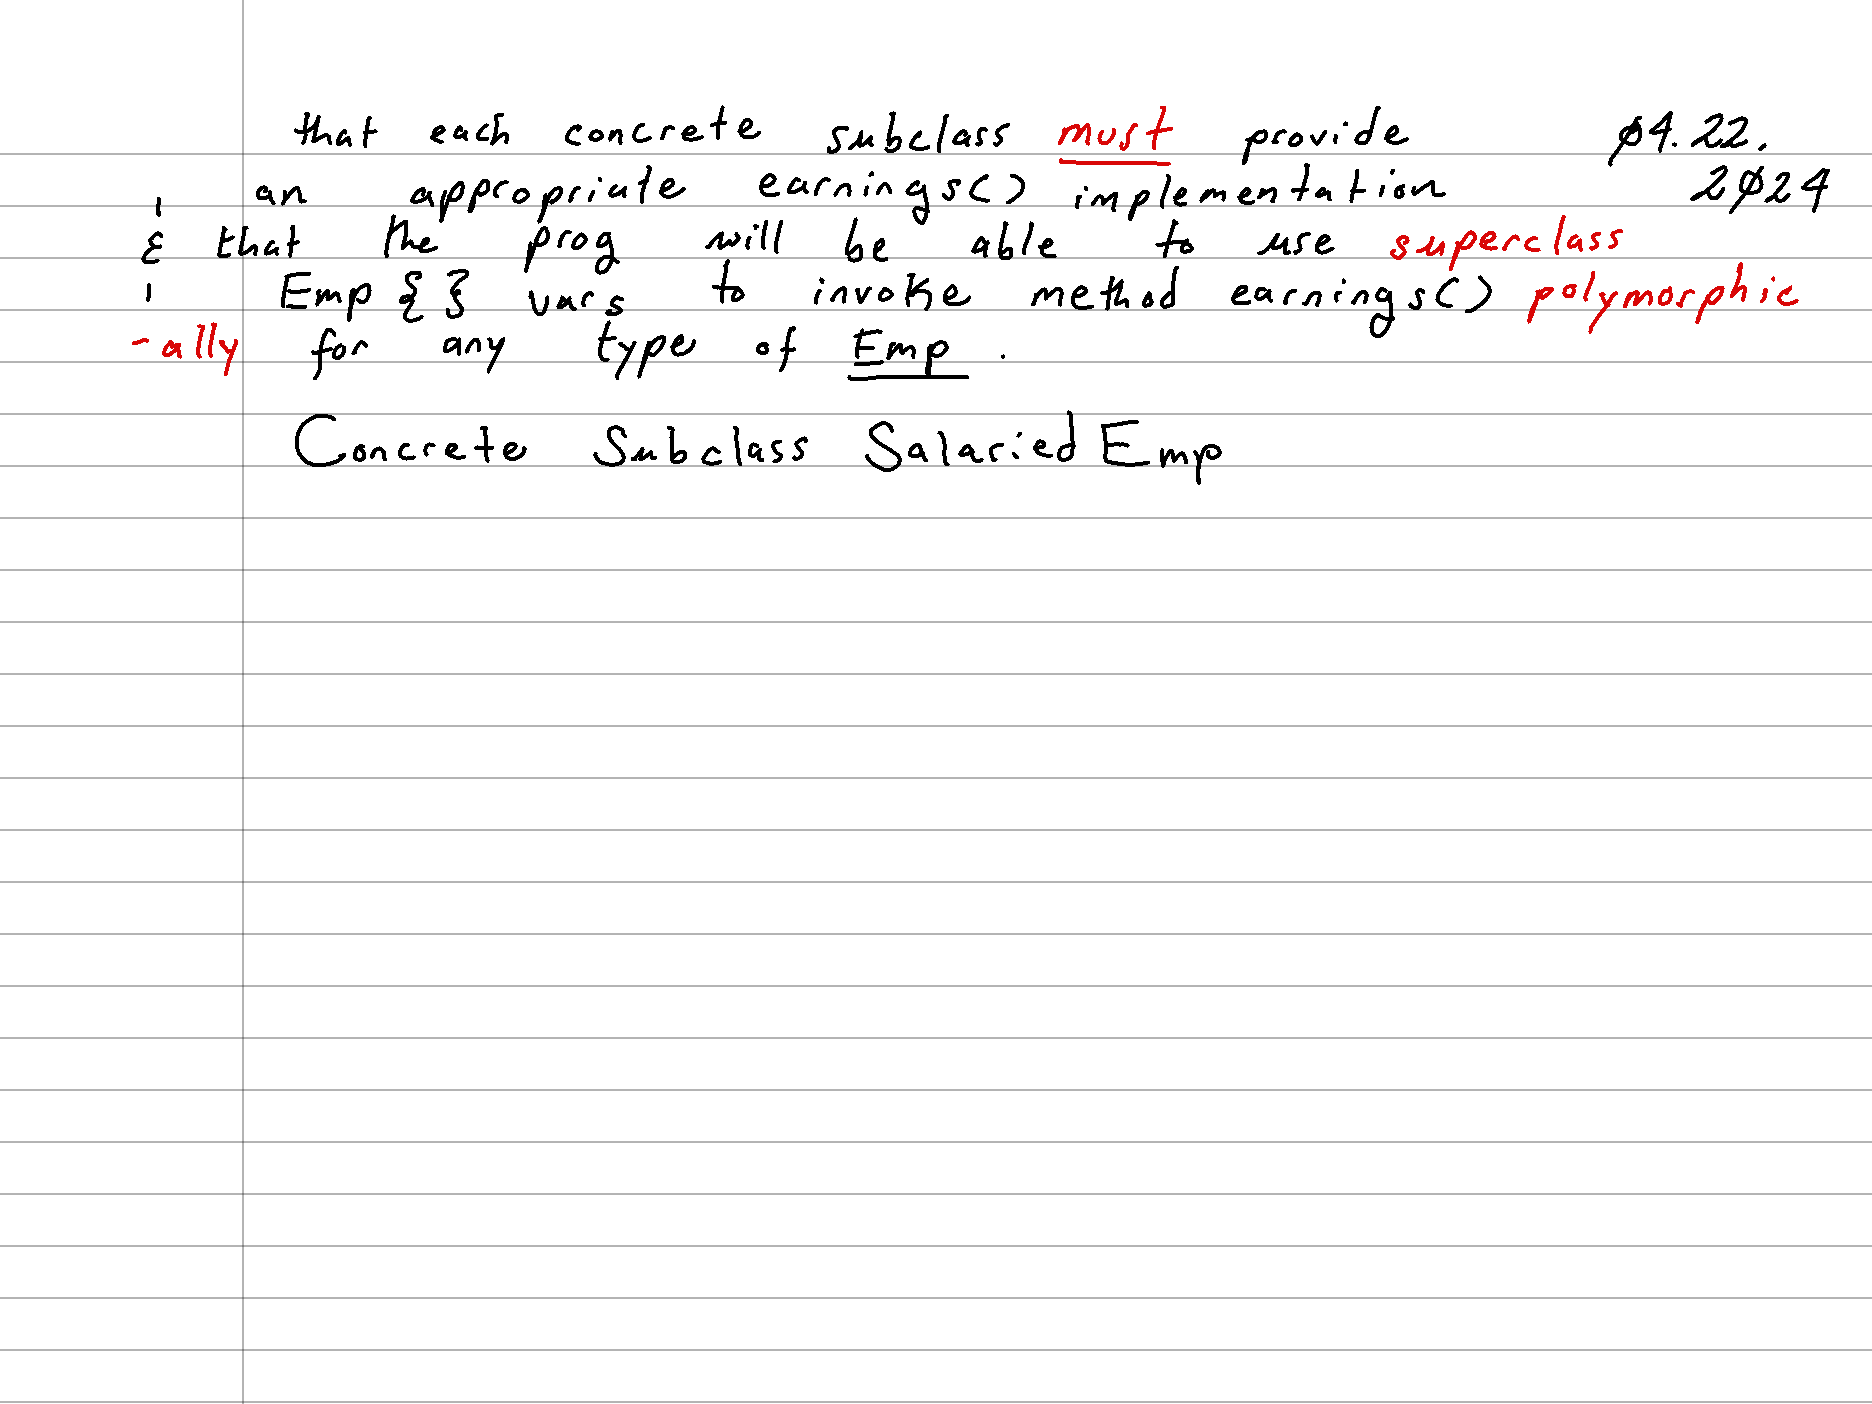 that each concrete subclass must provide ø4.22.
an appropriate earnings() implementation 2ø24
& that the prog will be able to use superclass
Emp { } vars to invoke method earnings() polymorphic
-ally for any type of Emp .
Concrete Subclass SalariedEmp